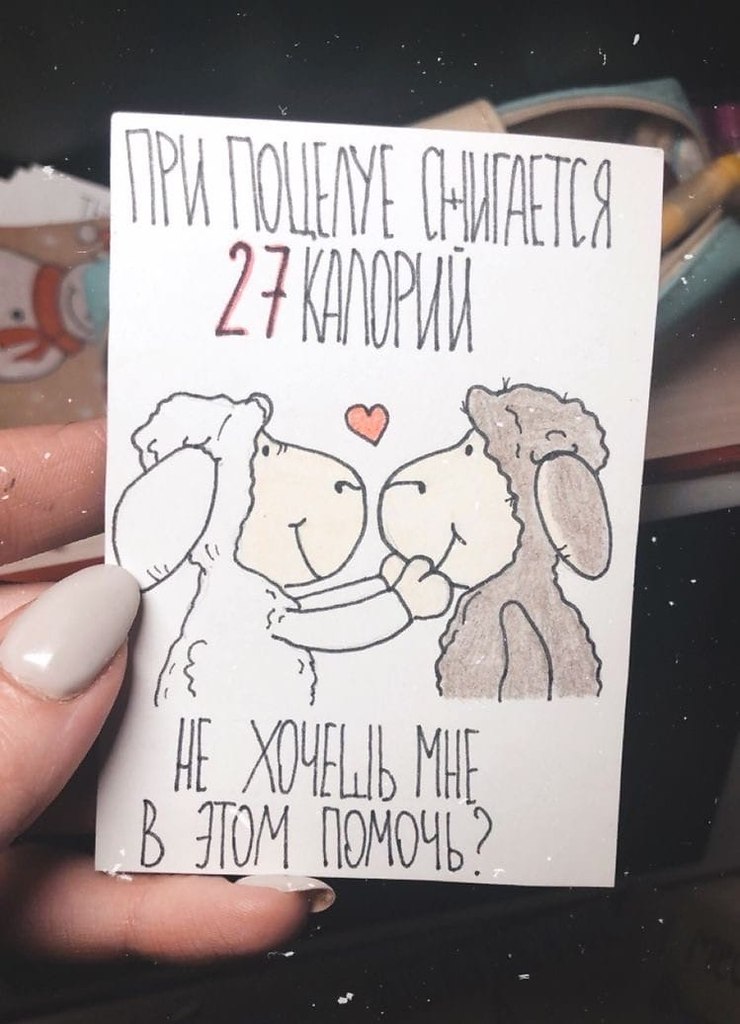 ПРИ ПОЦЕЛУЕ СЖИГАЕТСЯ
27 КАЛОРИЙ
НЕ ХОЧЕШЬ МНЕ
В ЭТОМ ПОМОЧЬ?